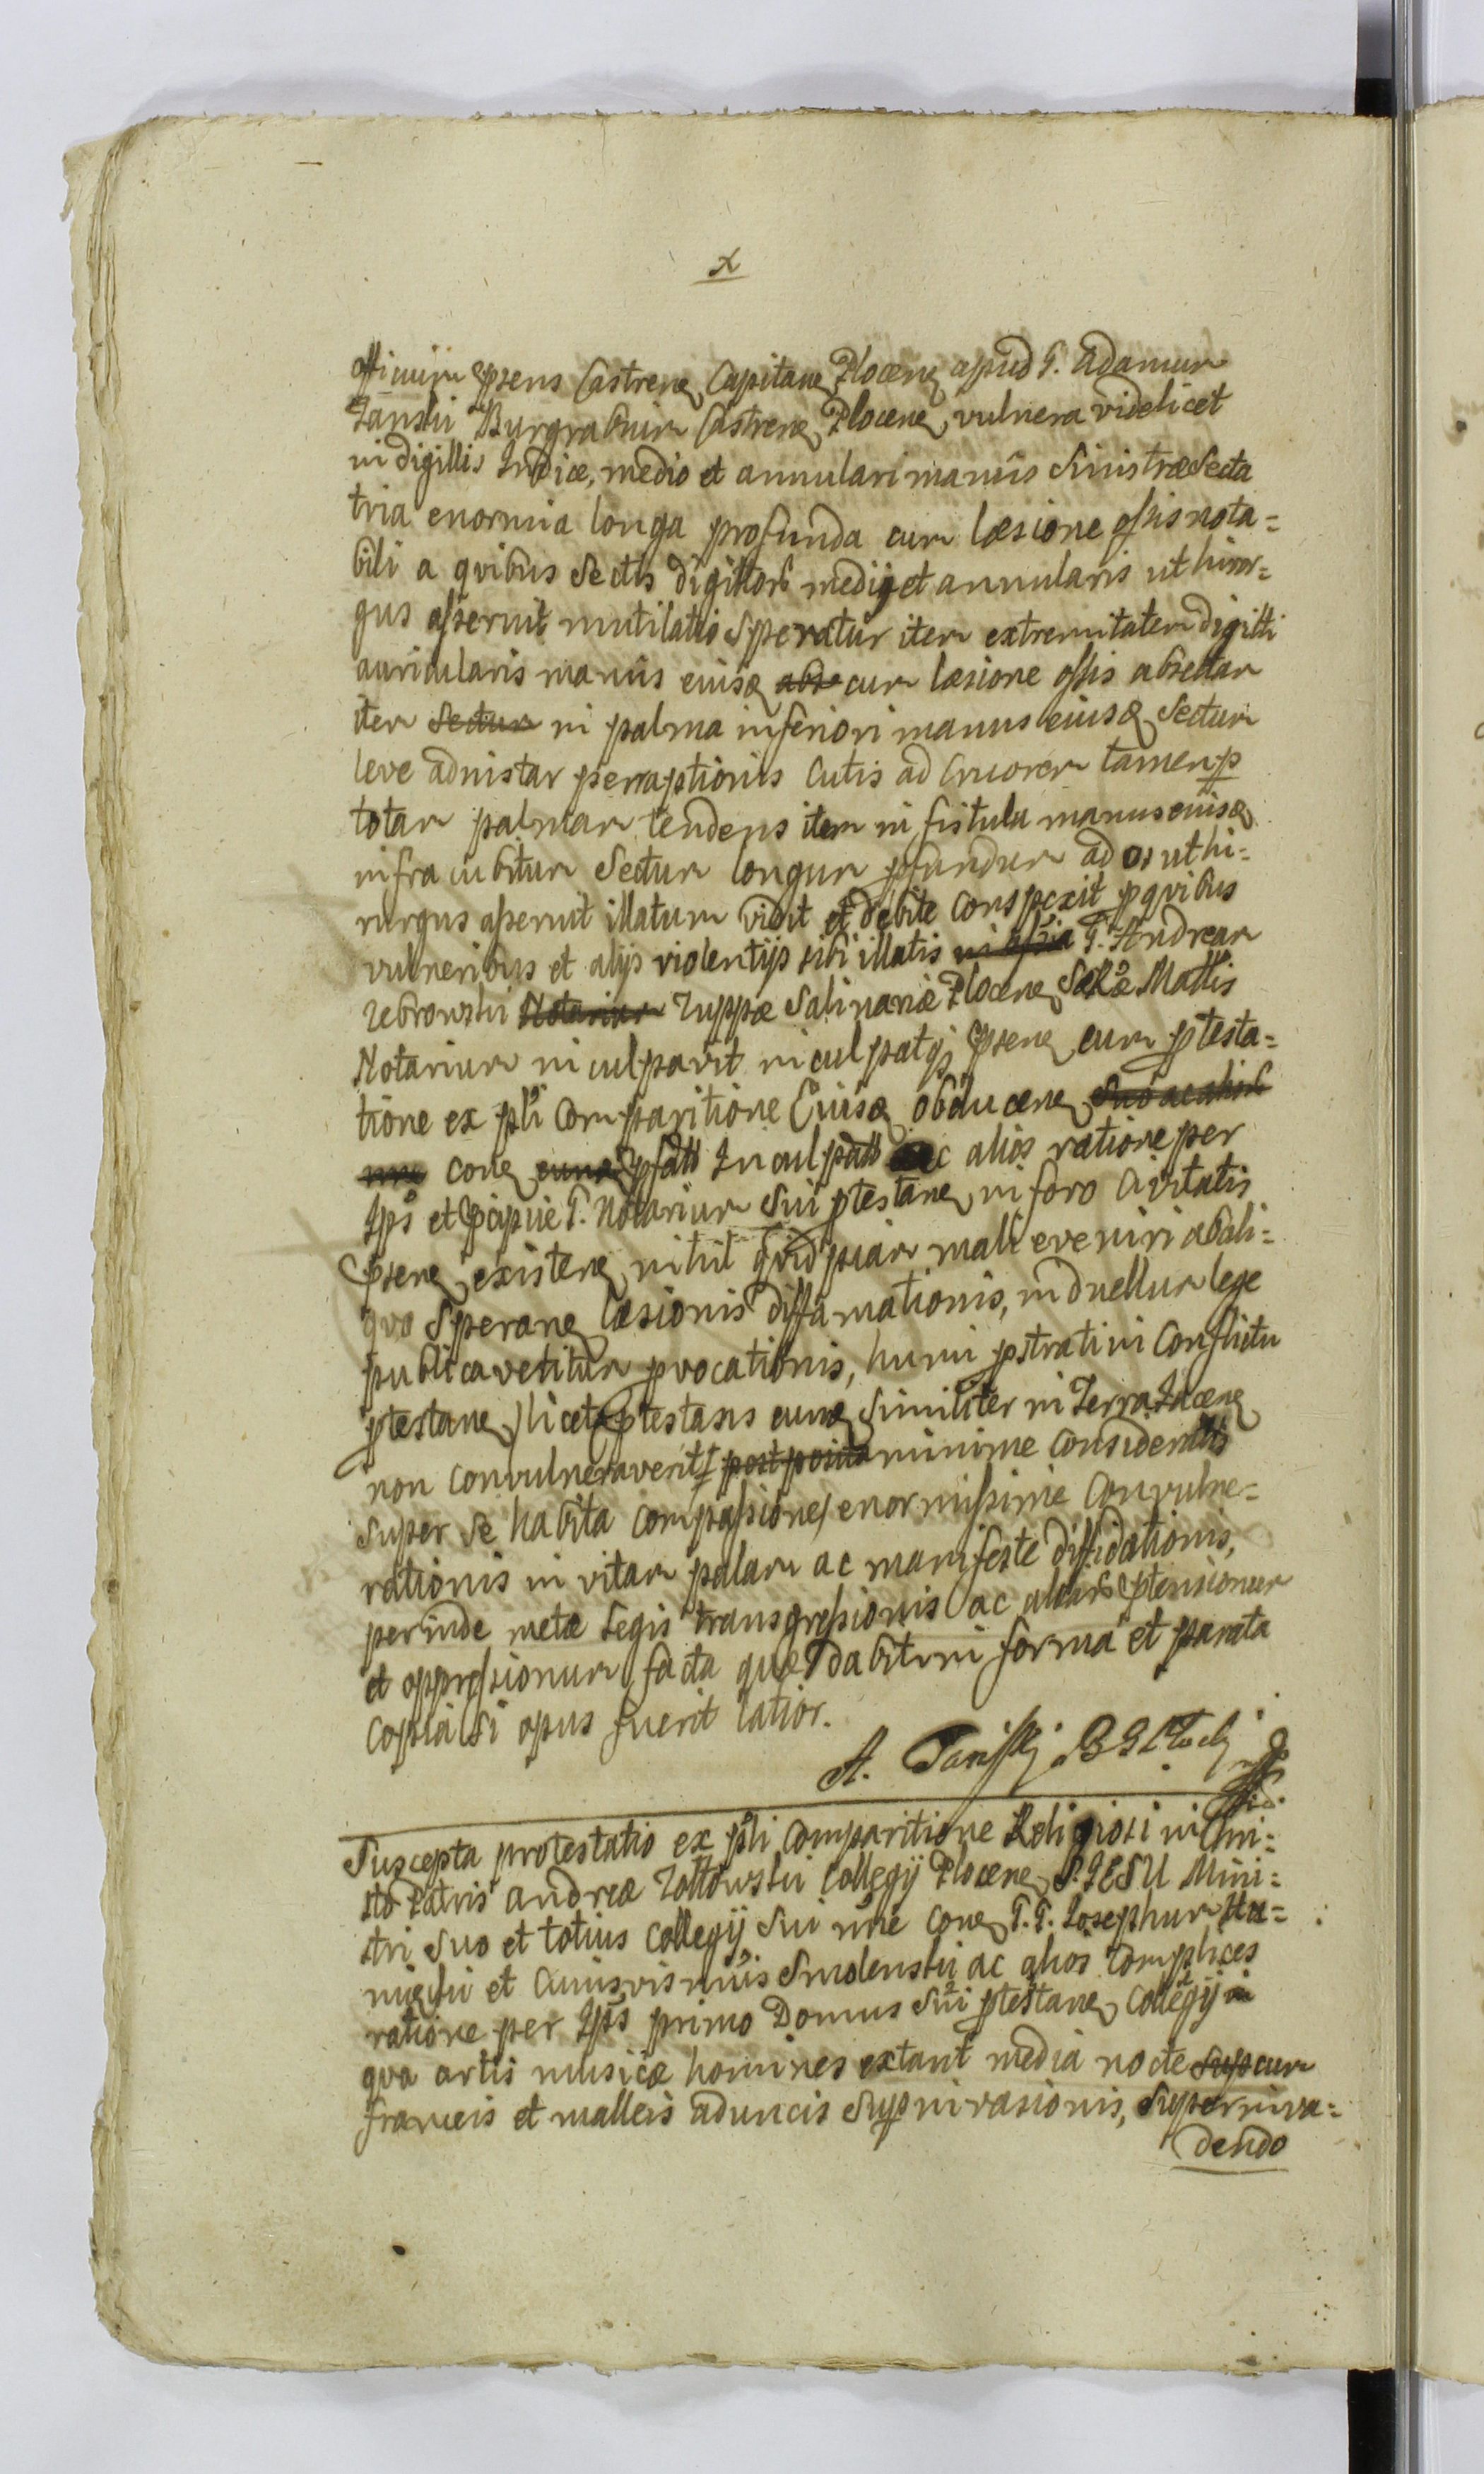 x
officium ꝓsens Castren Capitane Plocen apud G. Adamum
Zanski Burgrabium Castren Plocen, vulnera videlicet
in digillis Indice, medio et annulari manus sinistræ secta
tria enormia longa profunda cum læsione oſsis nota=
bili a qvibus sectis digittorb medij et annularis ut hirur=
gus aſseruit mutilatio speratur item extremitatem digitti
auricularis manus eiusq abs cum læsione oſsis absectam
item sectum in palma inferiori manus eiusq sectum
leve adinstar perraptionis cutis ad cruorem tamen p
totam palmam tendens item in fistula manus eiusq
infra cubitum sectum longum pfundum ad os ut hi=
rurgus aſseruit illatum vidit et debite conspexit p qvibus
vulneribus et alijs violentijs sibi illatis G. Andream
Zebrowski Notarium Zuppæ Salinariæ Plocen Sæ Ræ Mattis
Notarium inculpavit inculpatq psens cum ptesta=
tione ex pti comparitione Eiusq obducen suo ac alior
nne con eund pfatt Inculpatt ac alios ratione per
Ips et pcipue G. Notarium sui ptestan in foro Civitatis
psen existen nihil qvidpiam mali eveniri ab ali=
qvo speran læsionis diffamationis, in duellum lege
publica vetitum pvocationis, humi pstrati in conflictu
ptestan licet ptestans eund similiter in Terra Iacen
non convulneraverit postposita minime consideratt
super se habita compaſsione enormiſsime convulne=
rationis in vitam palam ac manifeste diffidationis,
perinde metæ legis transgreſsionis ac aliarb ptensionum
et oppreſsionum facta quæ dabitur in forma et parata
copia si opus fuerit latior.
A. Zanſkj B G Plockj
Suscepta protestatio ex pti comparitione Religiosi in Chri=
sto Patris Andreæ Zottowski Collegij Plocen S. IESU Mini=
stri suo et totius Collegij sui nne con G. G. Iosephum
et cuiusvis nnis Smolenski ac alios complices
ratione per Ips primo Domus sui ptestan Collegij in
qva artis musicæ homines extant media nocte sup cum
frameis et malleis aduncis supinvasionis, superinva=
dendo